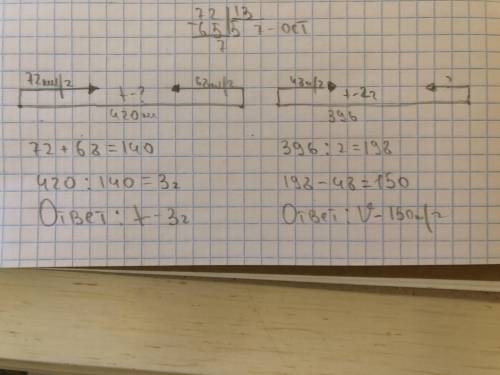 72 | 13
-65 | 5 7 - ост
7
72км/г 68км/г
t - ?
420км
72 + 68 = 140
420 : 140 = 3г
Ответ : t - 3г
48м/г ?
t - 2г
396
396 : 2 = 198
198 - 48 = 150
Ответ : V - 150м/г